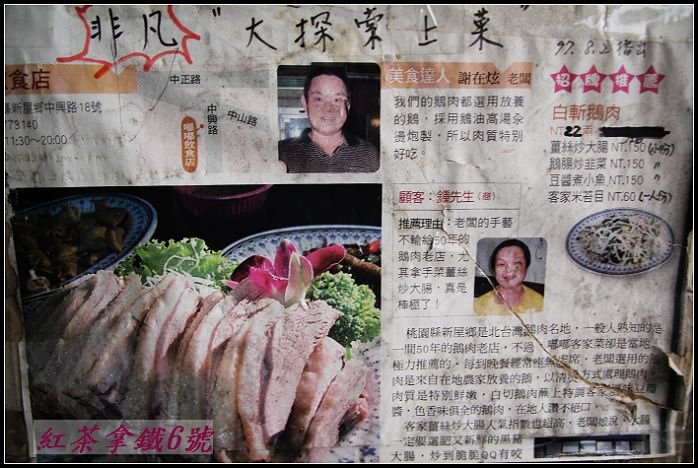 非凡 "大探索上菜"
97.8.2 播出
食店
縣新屋鄉中興路18號
773140
11:30～20:00
中正路
中興路
中山路
嘟嘟飲食店
美食達人 謝在炫 老闆
我們的鵝肉都選用放養
的鵝，採用鵝油高湯汆
燙炮製，所以肉質特別
好吃。
招牌推薦
白斬鵝肉
NT.22兩
薑絲炒大腸 NT.150
鵝腸炒韭菜 NT.150
豆醬煮小魚 NT.150
客家米苔目 NT.60
顧客：鍾先生（商）
推薦理由：老闆的手藝
不輸給50年的
鵝肉老店，尤
其拿手菜薑絲
炒大腸，真是
棒極了！
桃園縣新屋鄉是北台灣鵝肉名地，一般人熟知的是
一間50年的鵝肉老店，不過，嘟嘟客家菜卻是當地
極力推薦的，每到晚餐經常座無虛席。老闆選用的鵝
肉是來自在地農家放養的鵝，以清燙方式處理鵝肉，
肉質是特別鮮嫩，白切鵝肉蘸上特調客家
醬，色香味俱全的鵝肉，在地人讚不絕口。
客家薑絲炒大腸人氣指數也超高，老闆娘說，大腸
一定要選肥又新鮮的黑豬
大腸，炒到脆脆QQ有咬
紅茶拿鐵6號